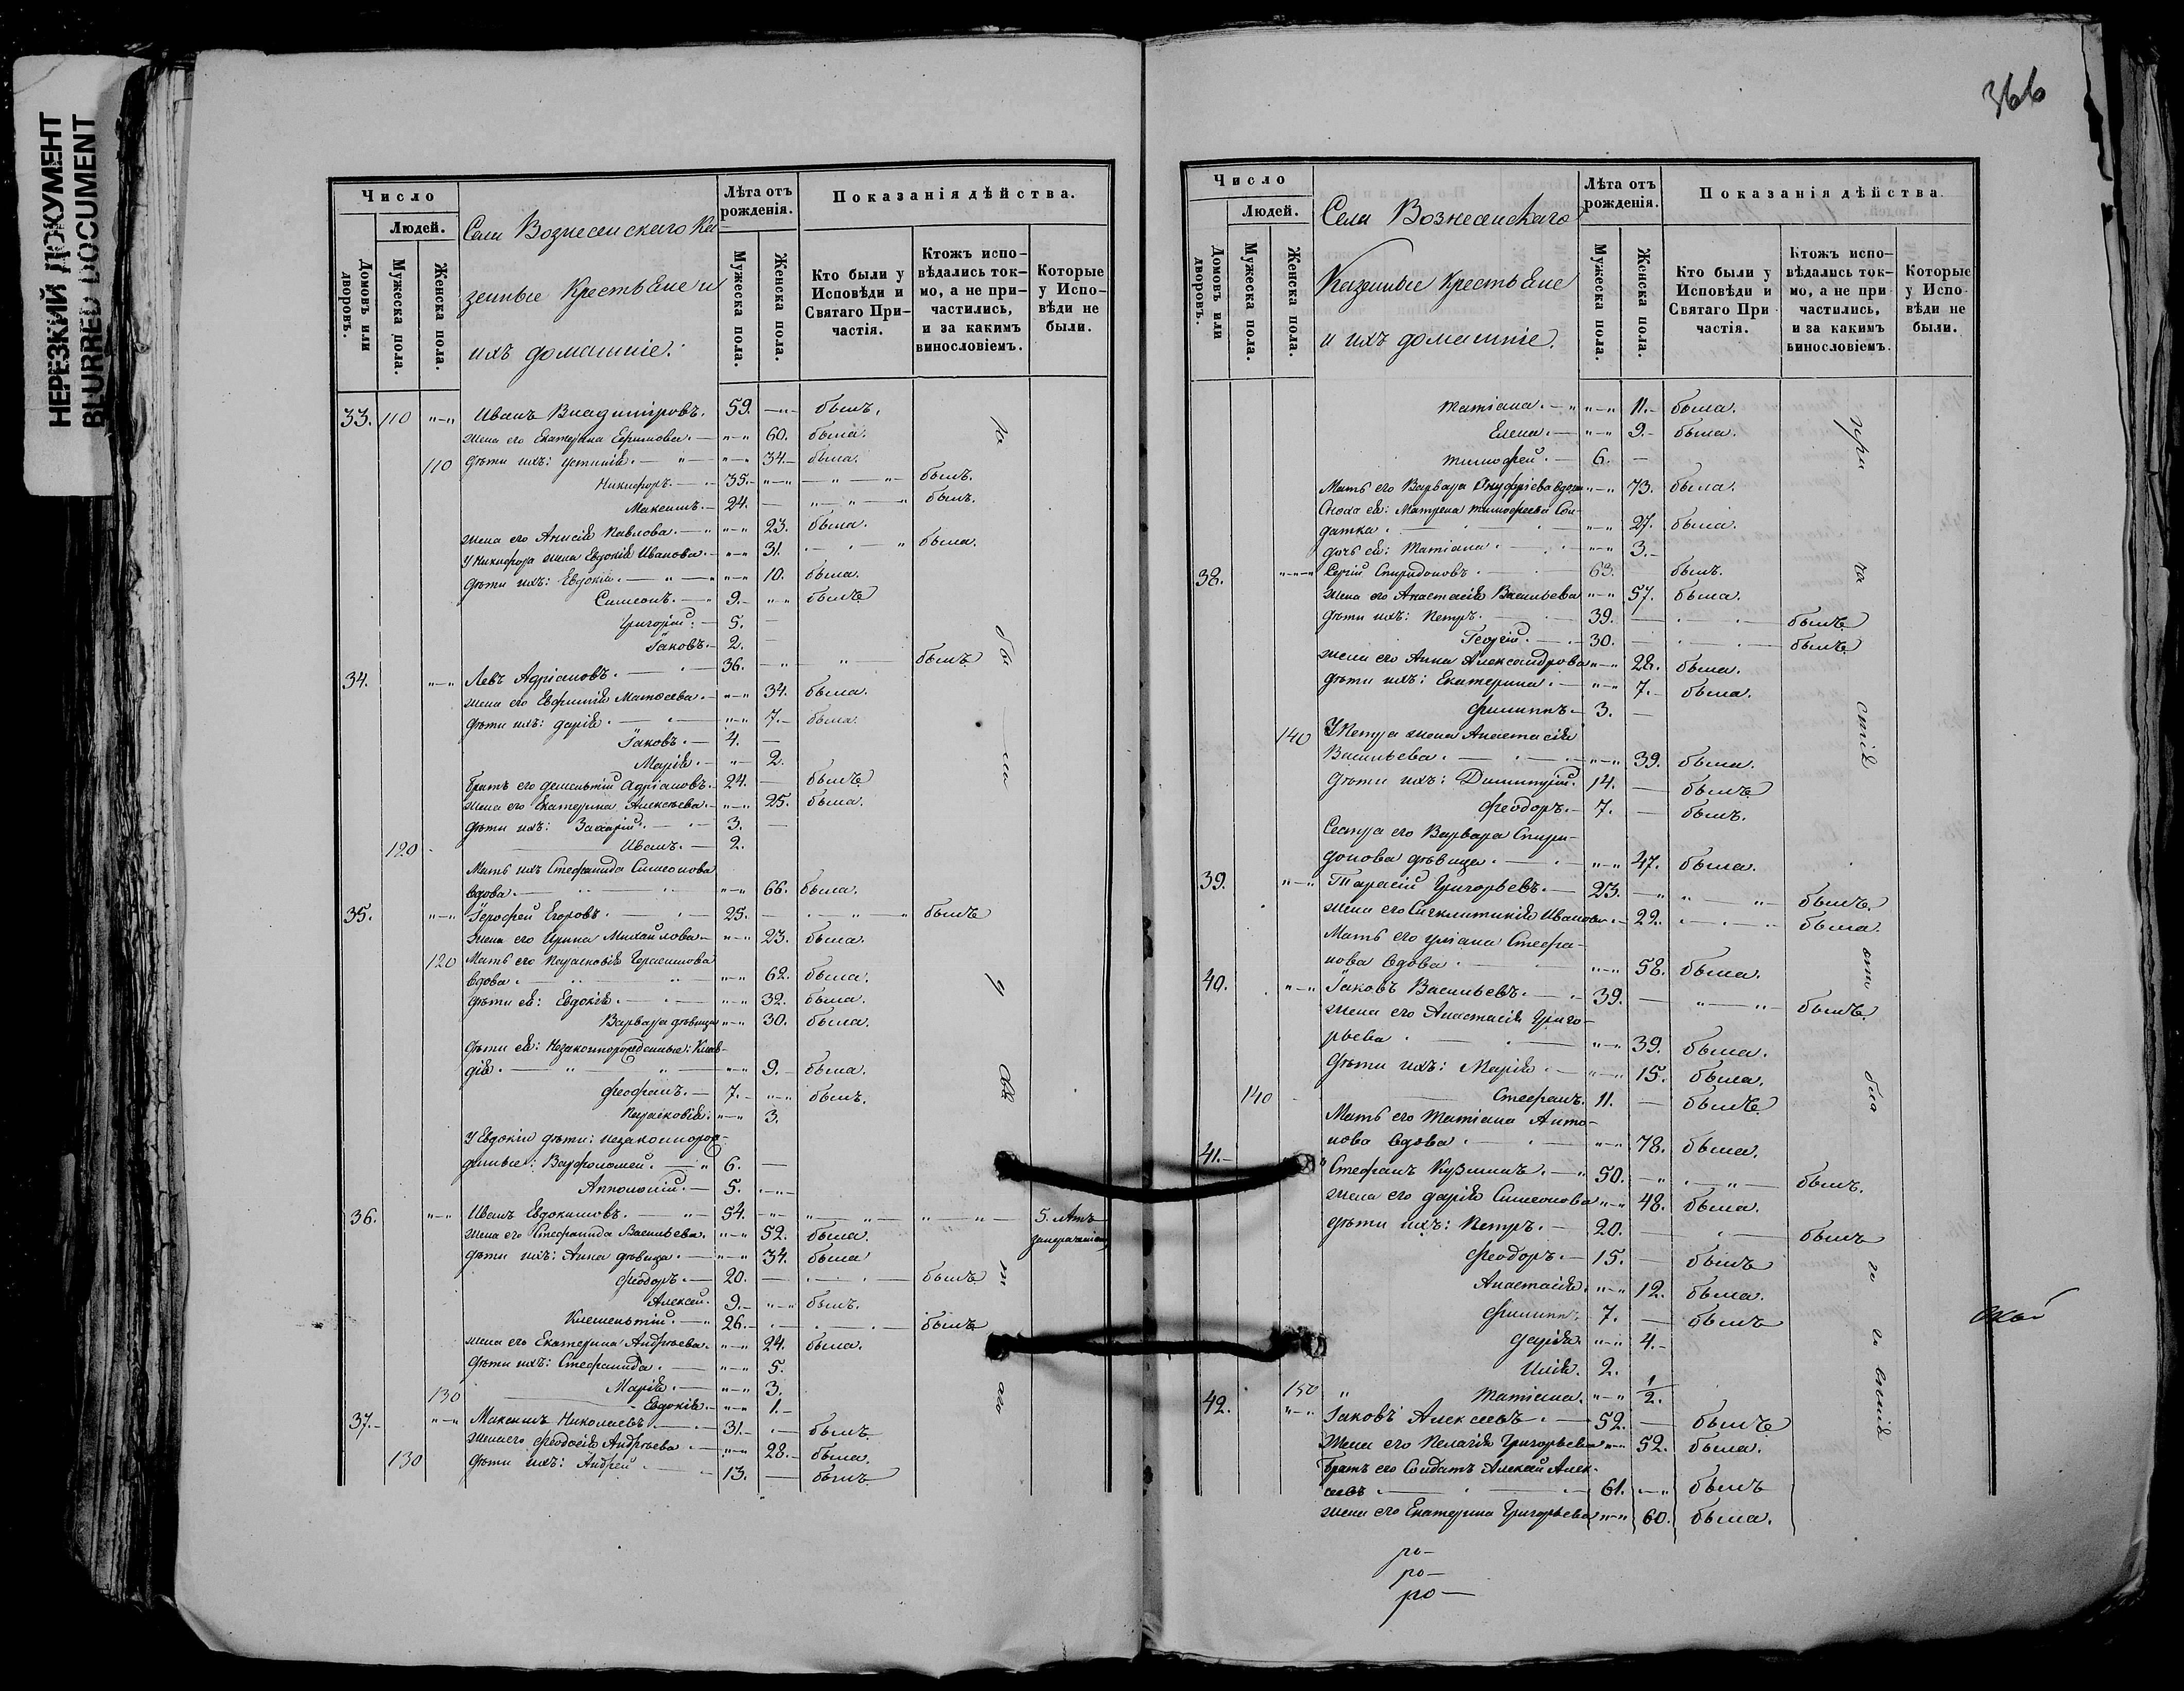 НЕРЕЗКИЙ ДОКУМЕНТ
BLURRED DOCUMENT
Число
Людей.
Домовъ или дворовъ.
Мужеска пола.
Женска пола.
Села Вознесенскаго Ка
зенные Крестьяне и
ихъ домашніе.
Лѣта отъ рожденія.
Мужеска пола.
Женска пола.
Показанія дѣйства.
Кто были у Исповѣди и Святаго При-частія.
Ктожъ испо-вѣдались ток-мо, а не при-частились, и за какимъ винословіемъ.
Которые у Испо-вѣди не были.
33. 110 "-" Иванъ Владиміровъ. 59. -"- былъ.
жена его Екатерина Ефимова. "-" 60. была.
110 Дѣти ихъ: Устинія. "-" 34. была.
Никифоръ. 35. "-" былъ.
Максимъ. 24. былъ.
жена его Анисія Павлова. "-" 23. была.
У Никифора жена Евдокія Иванова. "-" 31. была.
Дѣти ихъ: Евдокія. "-" 10. была.
Симеонъ. 9. "-" былъ
Григорій. 5.
Іаковъ. 2.
34. "-" Левъ Адріановъ. 36. былъ
жена его Евфимія Матѳеева. "-" 34. была.
Дѣти ихъ: Дарія. "-" 7. была.
Іаковъ. 4.
Марія. "-" 2.
Братъ его Дементій Адріановъ. 24. былъ
жена его Екатерина Алексѣева. "-" 25. была.
Дѣти ихъ: Захарій. 3.
120 Иванъ. 2.
Мать ихъ Стефанида Симеонова
вдова. "-" 66. была.
35. "-" Іерофей Егоровъ. 25. былъ
жена его Ирина Михайлова "-" 23. была.
120 Мать его Парасковія Герасимова
вдова. "-" 62. была.
Дѣти ея: Евдокія. "-" 32. была.
Варвара дѣвица "-" 30. была.
Дѣти ея: Незаконнорожденные: Клав-
дія. "-" 9. была.
Феофанъ. 7. "-" былъ.
Параковія. "-" 3.
У Евдокіи дѣти: незаконнорож-
денные: Варфоломей. 6.
Апполоній. 5.
36. "-" Иванъ Евдокимовъ. 54. 5. лѣтъ
жена его Стефанида Васильева. "-" 52. была.
Дѣти ихъ: Анна дѣвица. "-" 34. была
Феодоръ. 20. былъ
Алексей. 9. "-" былъ.
Клементій. 26. былъ
жена его Екатерина Андрѣева. "-" 24. была.
Дѣти ихъ: Стефанида. "-" 5.
Марія. "-" 3.
130 Евдокія. "-" 1.
37. "-" Максимъ Николаевъ. 31. былъ
жена его Феодосія Андрѣева "-" 28. была.
130 Дѣти ихъ: Андрей 13. былъ
366
Число
Людей.
Домовъ или дворовъ.
Мужеска пола.
Женска пола.
Села Вознесенскаго
Казенные Крестьяне
и ихъ домашніе.
Лѣта отъ рожденія.
Мужеска пола.
Женска пола.
Показанія дѣйства
Кто были у Исповѣди и Святаго При частія.
Ктожъ испо-вѣдались ток-мо, а не при частились, и за какимъ винословіемъ.
Которые у Испо вѣди не были.
Татіана. "-" 11. была.
Елена. "-" 9. была.
Тимофей. 6.
Мать его Варвара Онуфріева вдова "-" 73. была.
Сноха ея: Матрена Тимофеева Сол-
датка. "-" 27. была.
дочь ея: Татіана. "-" 3.
38. Сергій Спиридоновъ. 63. былъ.
жена его Анастасія Васильева "-" 57. была.
Дѣти ихъ: Петръ. 39. былъ
Георгій. 30. былъ
жена его Анна Александрова "-" 28. была.
Дѣти ихъ: Екатерина. "-" 7. была.
Филиппъ. 3.
140 У Петра жена Анастасія
Васильева. "-" 39. была.
Дѣти ихъ: Димитрій. 14. былъ
Феодоръ. 7. былъ.
Сестра его Варвара Спири-
донова дѣвица. "-" 47. была.
39. "-" Тарасій Григорьевъ. 23. былъ.
жена его Синклитикія Иванова. 22. была.
Мать его Уліана Стефа-
нова вдова. "-" 58. была.
40. "-" Іаковъ Васильевъ. 39. былъ.
жена его Анастасія Григо-
рьева. "-" 39. была.
Дѣти ихъ: Марія. "-" 15. была.
140 Стефанъ. 11. былъ
Мать его Татіана Анто-
нова вдова. "-" 78. была.
41. Стефанъ Кузминъ. 50. былъ.
жена его Дарія Симеонова "-" 48. была.
Дѣти ихъ: Петръ. 20. былъ
Феодоръ. 15. былъ
Анастасія. "-" 12. была.
Филиппъ. 7. былъ
Дарія. "-" 4.
Илія. 2.
150 Татіана. "-" 1/2.
42. "-" Іаковъ Алексеевъ. 52. былъ
Жена его Пелагія Григорьева "-" 52. была.
Братъ его Солдатъ Алексей Алек-
сеевъ 61. былъ
жена его Екатерина Григорьева "-" 60. была.
ро-
ро-
ро-